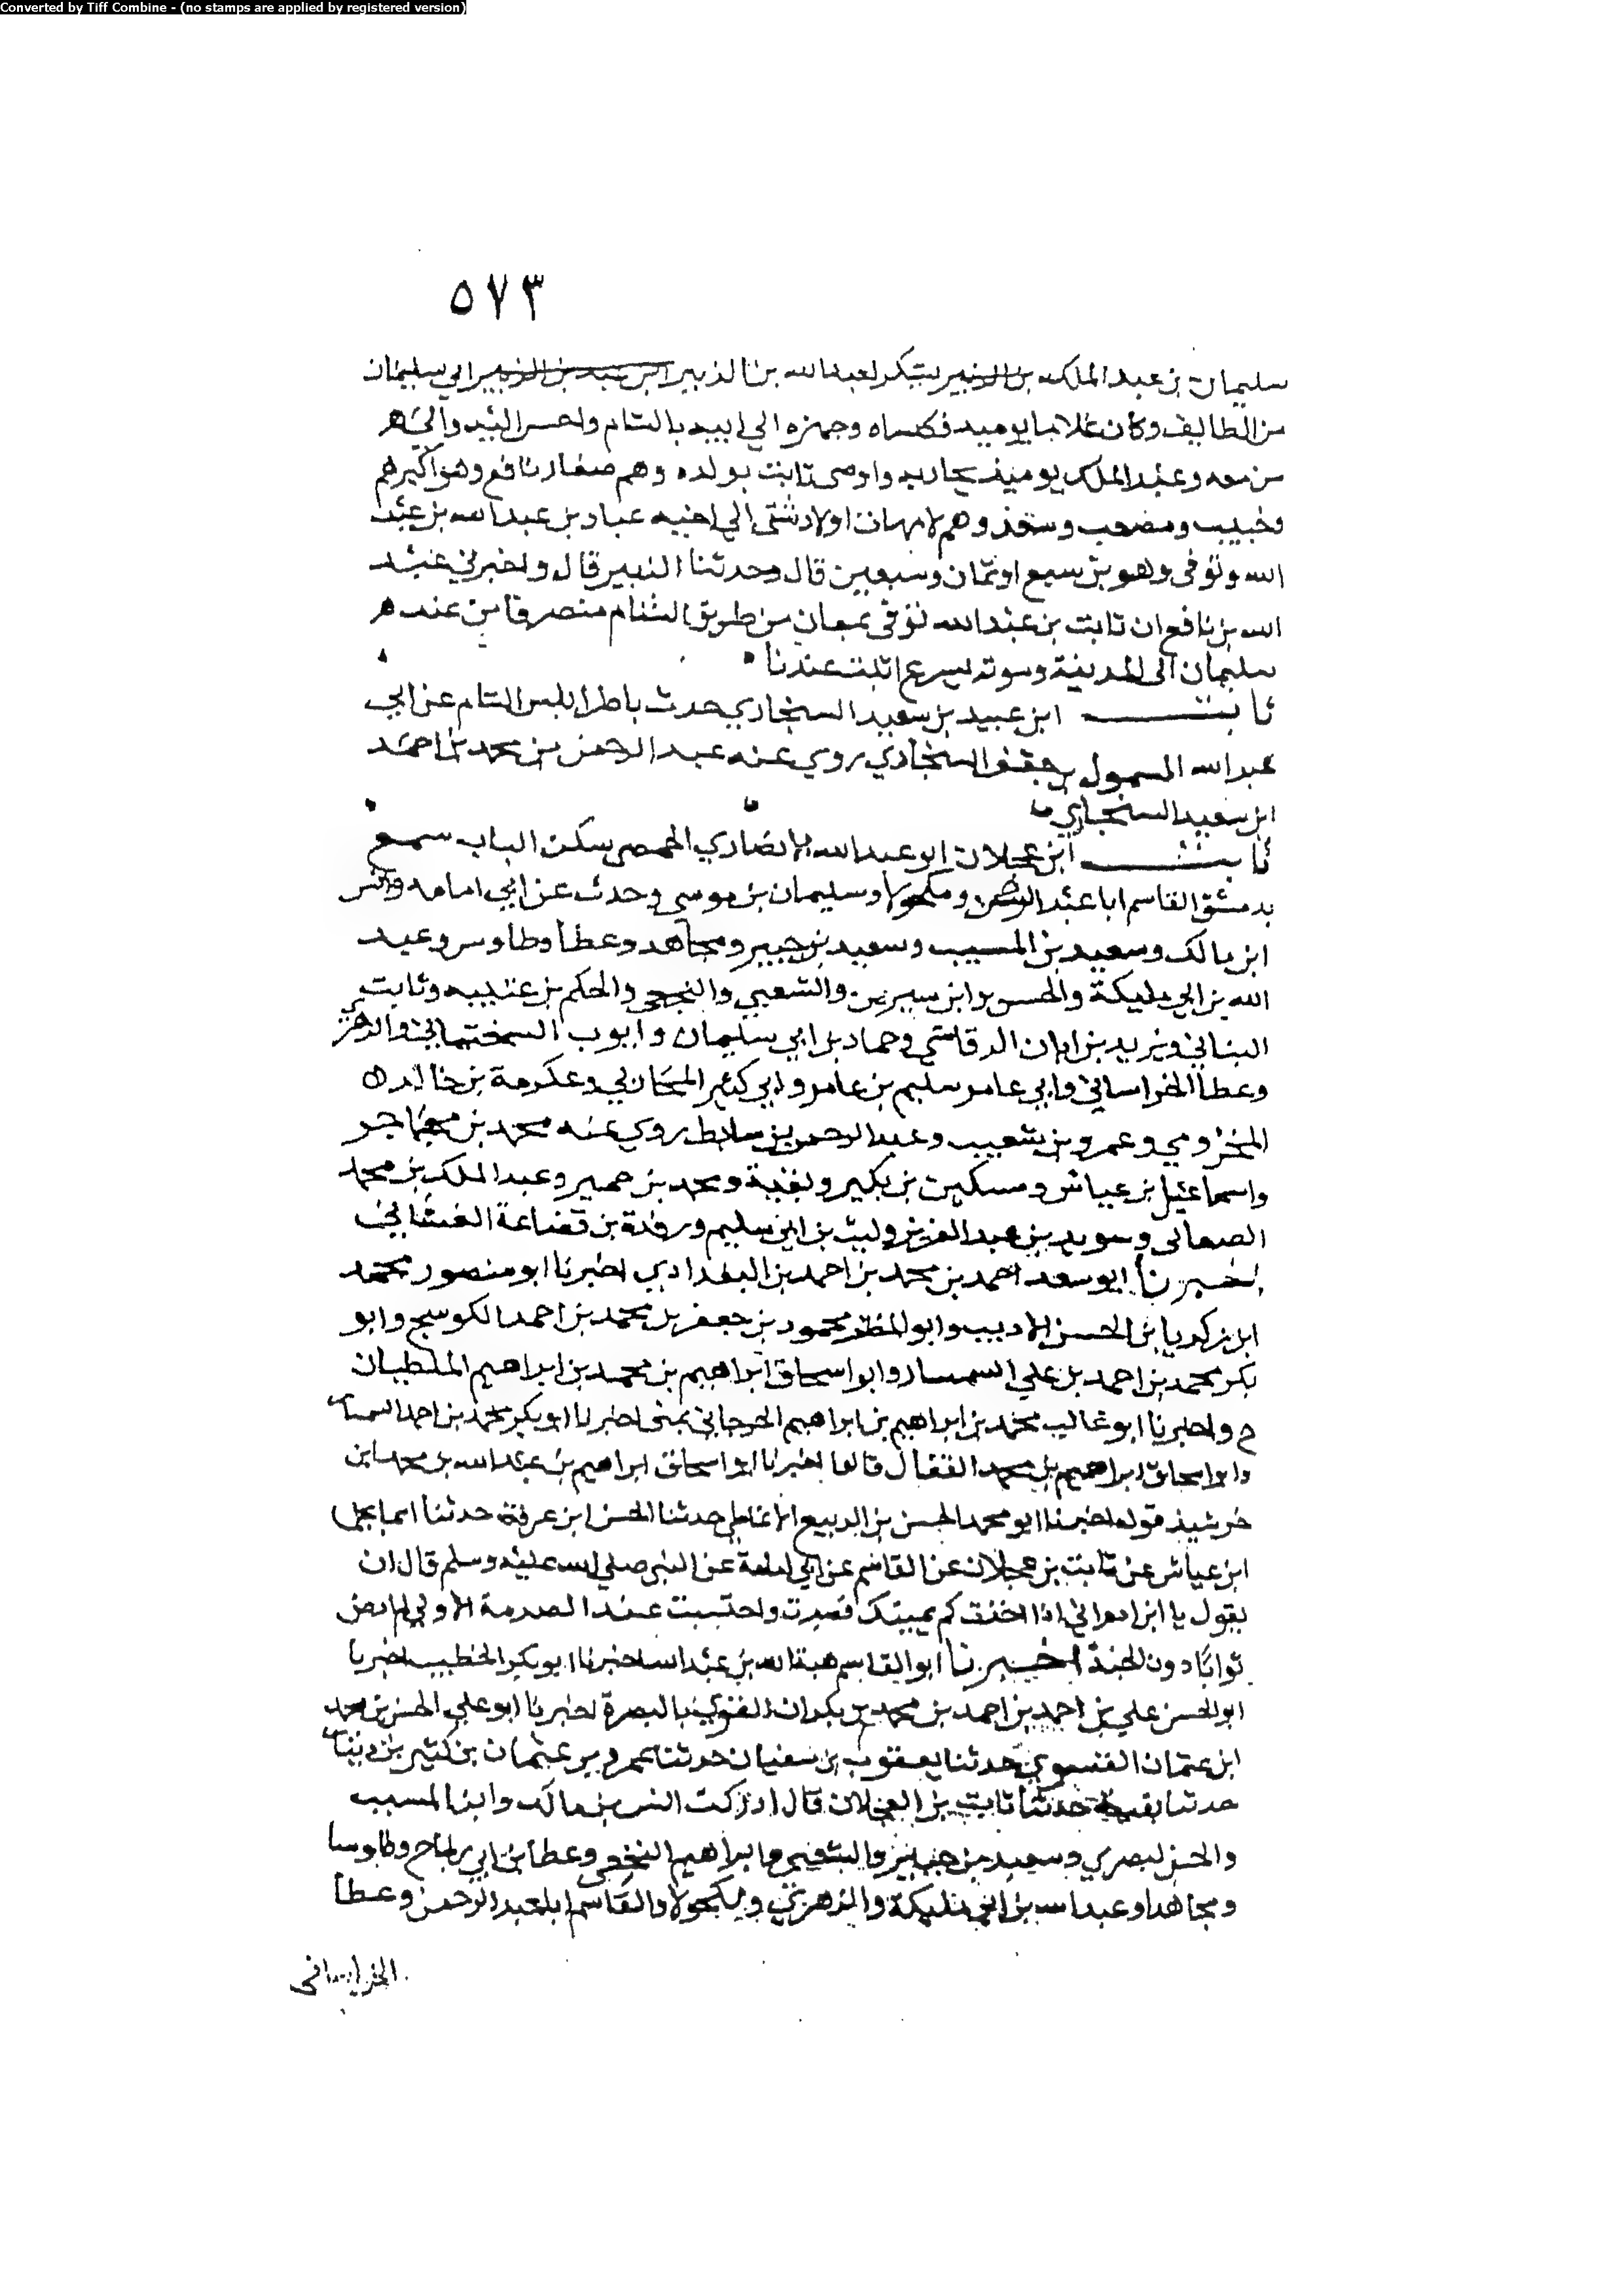 Converted by Tiff Combine - (no stamps are applied by registered version)
٥٧٣
سليمان بن عبد الملك بن الزبير يشكر لعبد الله بن الزبير ابي سليمان
من الطايف وكان غلاما يوميد فكساه وجهزه الي ابيه بالشام واحسن اليه والي
من معه وعبد الملك يوميذ يحاربه واوصى ثابت بولده وهم صغار نافع وهو اكبرهم
وخبيب ومصعب وسعد وهم لامهات اولاد شتى الي اخيه عباد بن عبد الله بن عبد
الله وتوفى وهو بن سبع اوثمان وسبعين قال وحدثنا الزبير قال واخبرني عبد
الله بن نافع ان ثابت بن عبد الله توفى بمعان من طريق الشام منصرفا من عند
سليمان الى المدينة وموته بسرع اثبت عندنا
ثابت ابن عبيد بن سعيد السنجاري حدث باطرابلس الشام عن ابي
عبد الله السمول بن جعفر السنجاري روي عنه عبد الرحمن بن محمد بن احمد
ابن سعيد السنجاري
ثابت ابن عجلان ابو عبد الله الانصاري الحمصي سكن الباب سمع
بدمشق القاسم ابا عبد الرحمن ومكحولا وسليمان بن موسي وحدث عن ابي امامه وانس
ابن مالك وسعيد بن المسيب وسعيد بن جبير ومجاهد وعطا وطاوس وعبد
الله بن ابي مليكة والحسن وابن سيرين والشعبي والنخعي والحكم بن عتيبه وثابت
البناني ويزيد بن ابان الرقاشي وحماد بن ابي سليمان وايوب السختياني والزهري
وعطا الخراساني وابي عامر سليم بن عامر وابي كثير المحاربي وعكرمة بن خالد
المخزومي وعمرو بن شعيب وعبد الرحمن بن سابط روي عنه محمد بن مهاجر
واسماعيل بن عياش ومسكين بن بكير وبقية ومحمد بن حمير وعبد الملك بن محمد
الصنعاني وسويد بن عبد العزيز وليث بن ابي سليم ورفدة بن قضاعة الغساني
اخبرنا ابو سعد احمد بن محمد بن احمد بن البغدادي اخبرنا ابو منصور محمد
ابن زكريا بن الحسن الاديب وابو المظفر محمود بن جعفر بن محمد بن احمد الكوسج وابو
بكر محمد بن احمد بن علي السمسار وابو اسحاق ابراهيم بن محمد بن ابراهيم
ح واخبرنا ابو غالب محمد بن ابراهيم بن ابراهيم الجرجاني بمنى اخبرنا ابو بكر محمد بن احمد
وابو اسحاق ابراهيم بن محمد القفال قالوا اخبرنا ابو اسحاق ابراهيم بن عبد الله بن محمد ابن
خرشيذ قوله اخبرنا ابو محمد الحسن بن الربيع الانماطي حدثنا الحسن ابن عرفة حدثنا اسماعيل
ابن عياش عن ثابت بن عجلان عن القاسم عن ابي امامة عن النبي صلي الله عليه وسلم قال ان
يقول يا ابن ادم اني اذا اخذت كريمتيك فصبرت واحتسبت عند الصدمة الاولي لم ارض
ثوابا دون الجنة اخبرنا ابو القاسم هبة الله بن عبد الله اخبرنا ابو بكر الخطيب اخبرنا
ابو الحسن علي بن احمد بن احمد بن محمد بن بكران الفوي بالبصرة اخبرنا ابو علي الحسن بن محمد
ابن عثمان الفسوي حدثنا يعقوب بن سفيان حدثنا عمرو بن عثمان بن كثير بن دينار
حدثنا بقية حدثنا ثابت بن العجلان قال ادركت انس بن مالك وابن المسيب
والحسن البصري وسعيد بن جبير والشعبي وابراهيم النخعي وعطا بن ابي رباح وطاوسا
ومجاهدا وعبد الله بن ابي مليكة والزهري ومكحولا والقاسم ابا عبد الرحمن وعطا
الخراساني